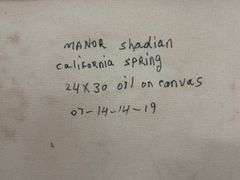 MANOR Shadian
CALIFORNIA SPRING
24X30 oil on canvas
07-14-14-19